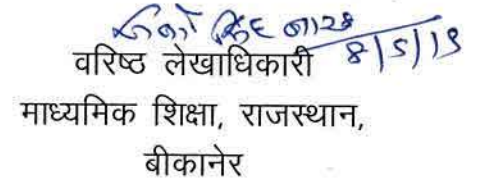 8/5/19
वरिष्ठ लेखाधिकारी
माध्यमिक शिक्षा, राजस्थान,
बीकानेर